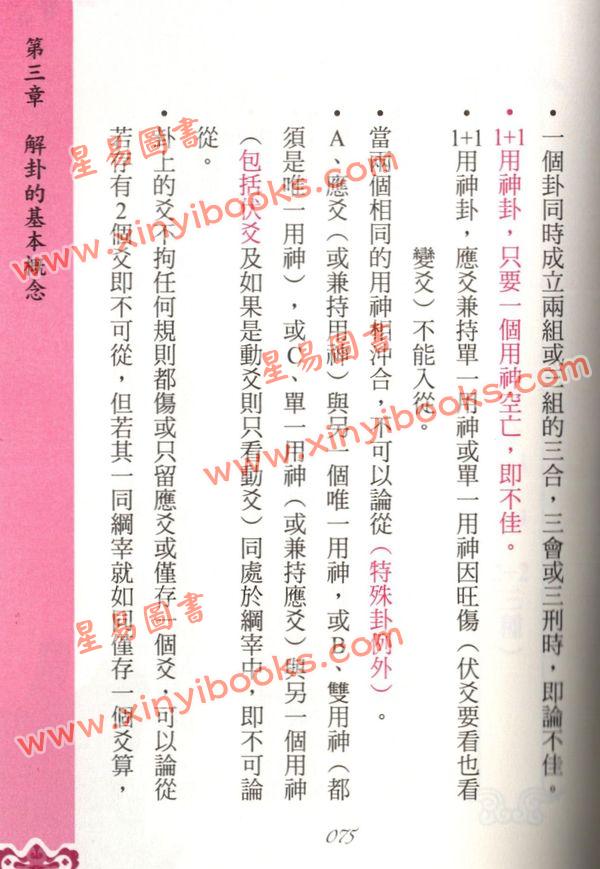 • 一個卦同時成立兩組或三組的三合，三會或三刑時，即論不佳。
• 1+1用神卦，只要一個用神空亡，即不佳。
• 1+1用神卦，應爻兼持單一用神或單一用神因旺傷（伏爻要看也看
變爻）不能入從。
• 當兩個相同的用神相沖合，不可以論從（特殊卦例外）。
• A、應爻（或兼持用神）與另一個唯一用神，或B、雙用神（都
須是唯一用神），或C、單一用神（或兼持應爻）與另一個用神
（包括伏爻及如果是動爻則只看動爻）同處於綱宰中，即不可論
從。
• 卦上的爻不拘任何規則都傷或只留應爻或僅存一個爻，可以論從
若存有2個爻即不可從，但若其一同綱宰就如同僅存一個爻算，
第三章　解卦的基本概念
075
星易圖書
www.xinyibooks.com
星易圖書
www.xinyibooks.com
星易圖書
www.xinyibooks.com